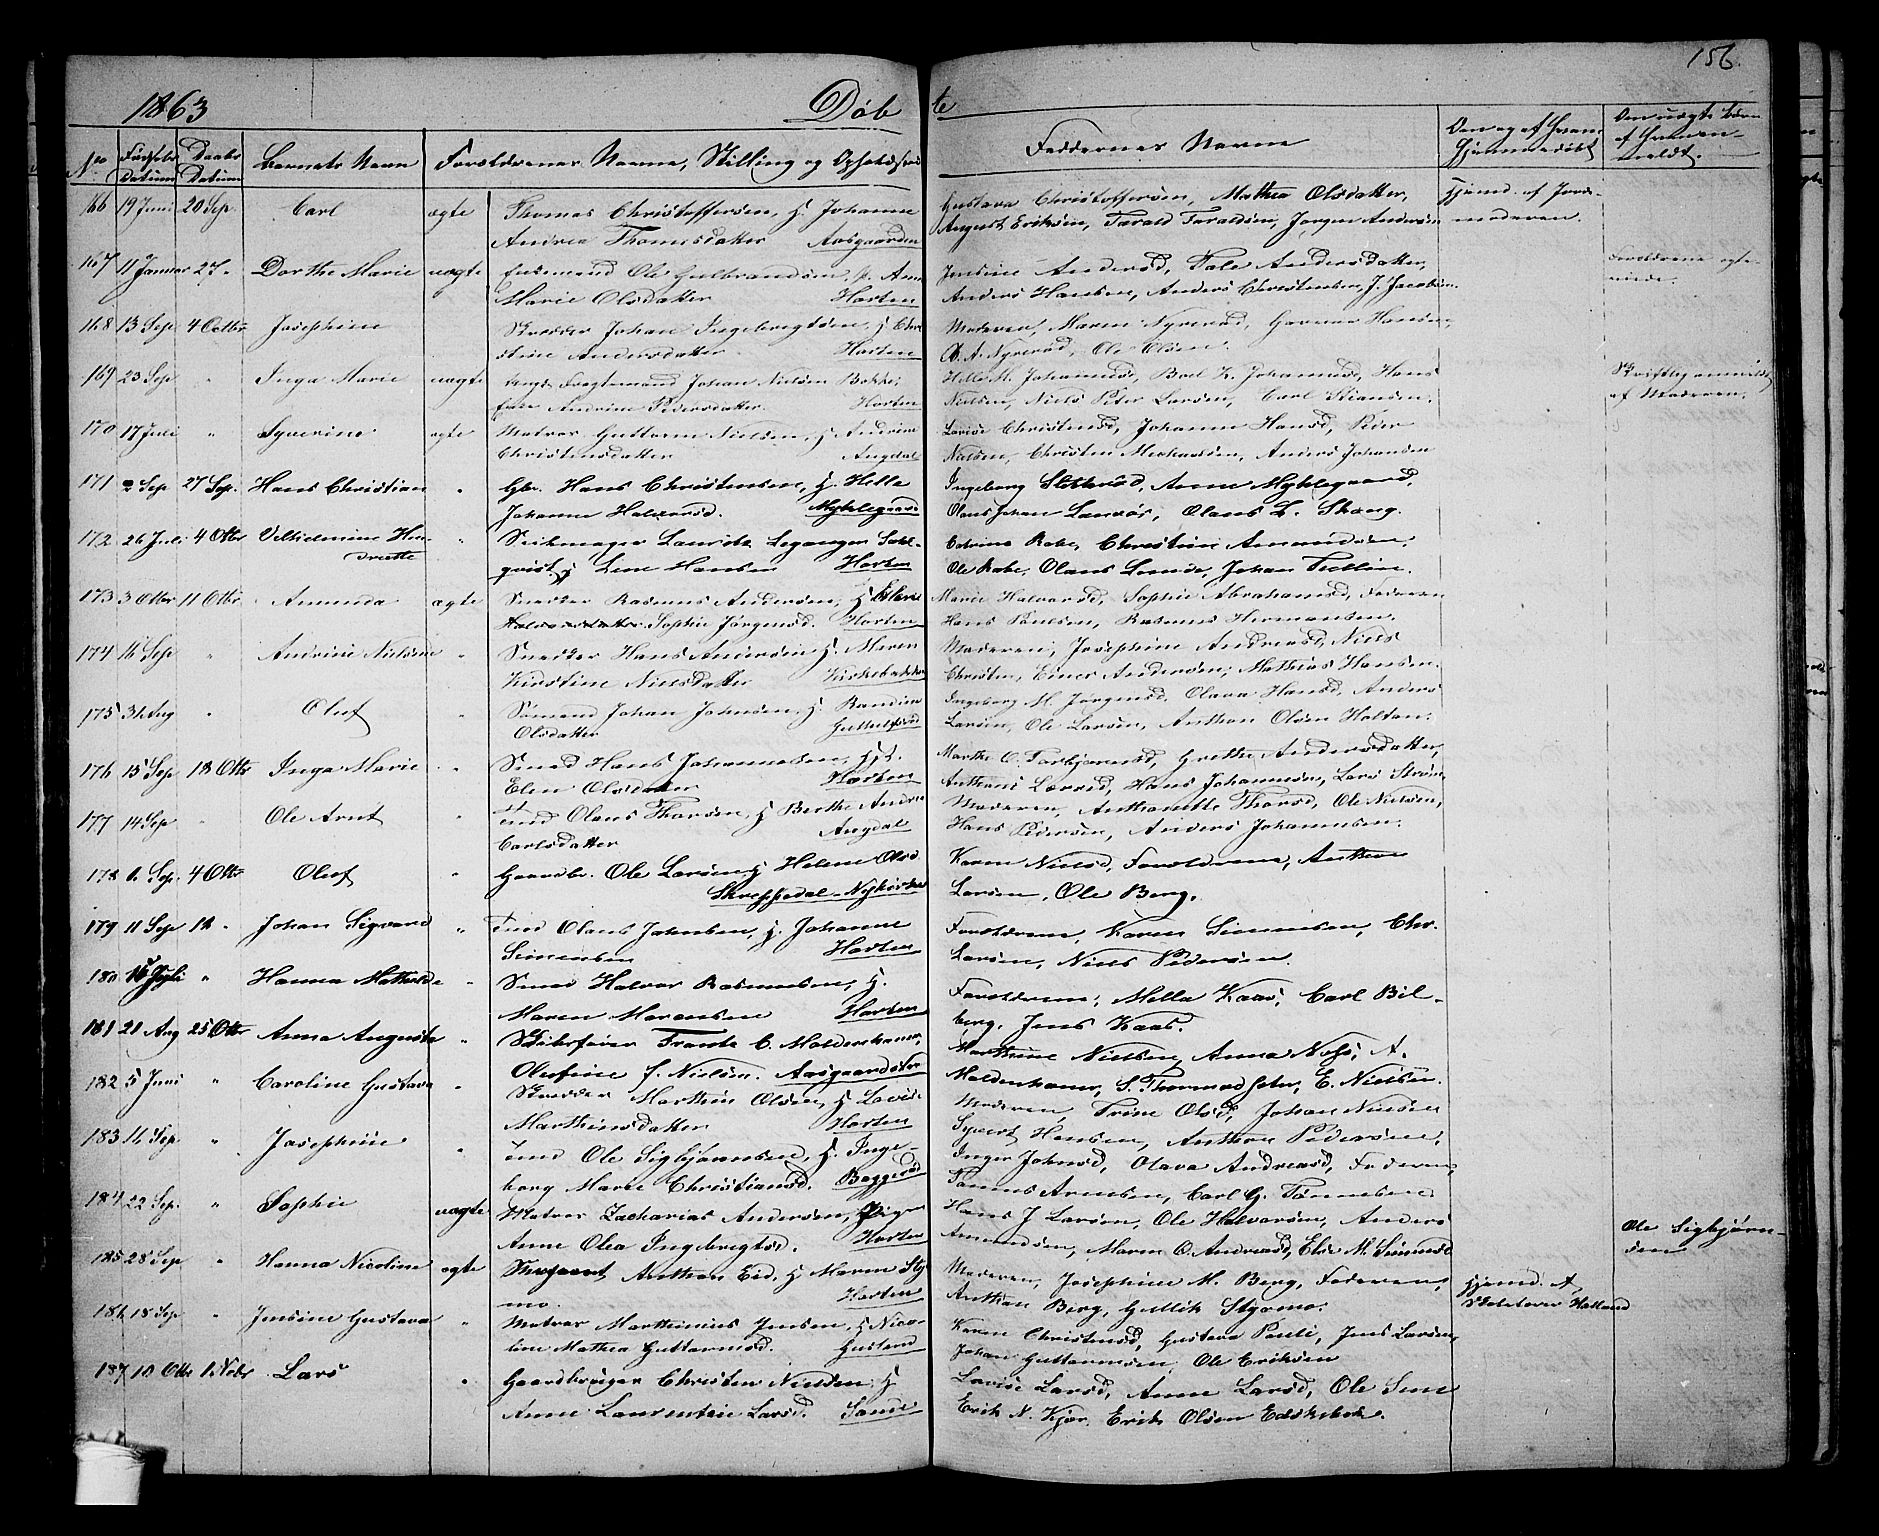 156.
1863 Döbte
No Födsels Datum Daabs Datum Barnets Navn Forældrenes Navne, Stilling og Opholdssted Faddernes Navne
166 19 Juni 20 Sep. Carl ægte Thomas Christoffersen, H. Johanne
Andrea Thomesdatter Aasgaarden
Gustava Christoffersen, Mathea Olsdatter,
August Eriksön, Tarald Taraldsön, Jörgen Andersön
Hjemd. af Jorde-
moderen.
167 11 Januar 27 " Dorthe Marie uægte Ole Gulbrandsen, p. Ane
Marie Olsdatter Horten
Jensine Andersd, Tale Andersdatter,
Anders Hansen, Anders Christensen, J. Jacobsen.
Forældrene
168 13 Sep 4 Octbr Josephine Skrædder Johan Ingebregtsön, H Chri-
stine Andersdatter. Horten
Moderen, Maren Nyrerød, Hansen,
A. Nyrerød, Ole Olsen.
169 23 Sep " Inga Marie uægte Fragtemand Johan Nielsön Bakke,
Andrine Pedersdatter. Horten
Helle M. Johannesd, Boel K. Johannesd, Hans
Nielsen, Niels Peter Larsen, Carl Stiansen.
Skriftlig anmeldt
af Moderen.
170 17 Juli " Syverine ægte Matros Guttorm Nielsen, H Andrine
Christensdatter Angdal
Lovise Christensd, Johanne Hansd, Peder
Nielsen, Christen Mathisen, Anders Johansen
171 2 Sep 27 Sep. Hans Christian " Gbr. Hans Christensen, H. Helle
Johanne Halvorsd. Myhlegaard
Ingeborg Anne Myhlegaard,
Olaus Johan Olaus L. Skang.
172 26 Juli 4 Otbr Vilhelmine Hen- "
driette
Seilmager Lauritz Leganger Sahl-
qvist, H Lene Hansen Horten
Catrine Rabe, Christine Amundsen,
Ole Rabe, Olaus Johan Tellin.
173 3 Otbr 11 Otbr Amunda ægte Snedker Rasmus Andersen, H
Halvorsdatter Sophie Jörgensd. Horten
Marie Halvorsd, Sophie Abrahamsd, Faderen
Hans Poulsen, Rasmus Hermansen.
174 16 Sep " Andrine Nielsine " Snedker Hans Andersön H. Maren
Kirstine Nielsdatter Kirkebakken
Moderen, Josephine Andreasd, Niels
Christen, Einer Andersön, Mathias Hansen.
175 31 Aug " Oluf " Sömand Johan Johnsen, H. Randine
Olsdatter
Ingeborg M. Jörgensd, Olava Hansd, Anders
Larsön, Ole Larsön, Anthon Olsen Holtan.
176 15 Sep 18 Otbr Inga Marie " Smed Hans Johannesen, H.
Elen Olsdatter Horten
Marthe O. Torbjørnsd, Grethe Andersdatter,
Anthoni Larsd, Hans Johannesön, Lars Ström
177 14 Sep " Ole Arnt " Olaus Thorsön, H Berthe Andrea
Carlsdatter Angdal
Moderen, Anthonette Thorsd, Ole Nielsön,
Hans Pedersön, Anders Johannesen.
178 6 Sep. 4 Otbr Oluf " Gaardbr. Ole Larsön H Helene Olsd
Skreppedal-Nykirke
Karen Nielsd, Forældrene, Anthon
Larsen, Ole Berg.
179 11 Sep 11 " Johan Sigvard " Tmd Olaus Johnsen, H. Johanne
Simensen Horten
Forældrene, Karen Simensen, Chr.
Larsön, Niels Pedersön.
180 Juli " Hanna Mathilde " Smed Halvor Rasmussen, H.
Maren Morensen Horten
Forældrene, Mella Kaas, Carl Bil-
berg, Jens Kaas.
181 21 Aug 25 Otbr Anna Augusta " Skibsfører Frantz C. Moldenhauer,
Olufine f. Nielsen. Aasgaardstr
Marthine Nielsen, Anna A.
Moldenhauer, S. E. Nielsen.
182 5 Juni " Caroline Gustava " Skrædder Marthin Olsen, H Lovise
Marthinsdatter Horten
Moderen, Trine Olsd, Johan Nielsön
Syvert Hansen, Anthon Pedersön.
183 16 Sep. " Josephine " Tmd Ole Sigbjörnsen, H. Inge-
borg Marie Christiansd. Baggerød
Inger Johnsd, Olava Andreasd, Faderen,
Arnesen, Carl G. Tönnesen
184 22 Sep. " Sophie uægte Matros Zacharias Andersön, Pige
Anne Olea Ingebregtsd. Horten
Hans J Larsön, Ole Halvorsön, Anders
Amundsön, Maren O. Andreasd, Else M. Simensd
Ole Sigbjørn-
sen
185 28 Sep " Hanna Nicoline ægte Sergeant Anthon Eid, H Maren Sty
mo. Horten
Moderen, Josephine M. Berg, Faderen,
Anthon Berg, Gullik Styrmo.
Hjemd. A.
Holland
186 18 Sep " Jensine Gustava " Matros Marthinius Jensen, H Nico-
line Mathea Guttormsd.
Karen Christensd, Gustava Pauli, Jens Larsen,
Johan Guttormsön, Ole Eriksön
187 10 Otbr 1 Nobr Lars " Gaardbruger Christen Nielsen H
Anne Laurentine Larsd. Sande
Lovise Larsd, Anne Larsd, Ole
Erik N. Kjær, Erik Olsen